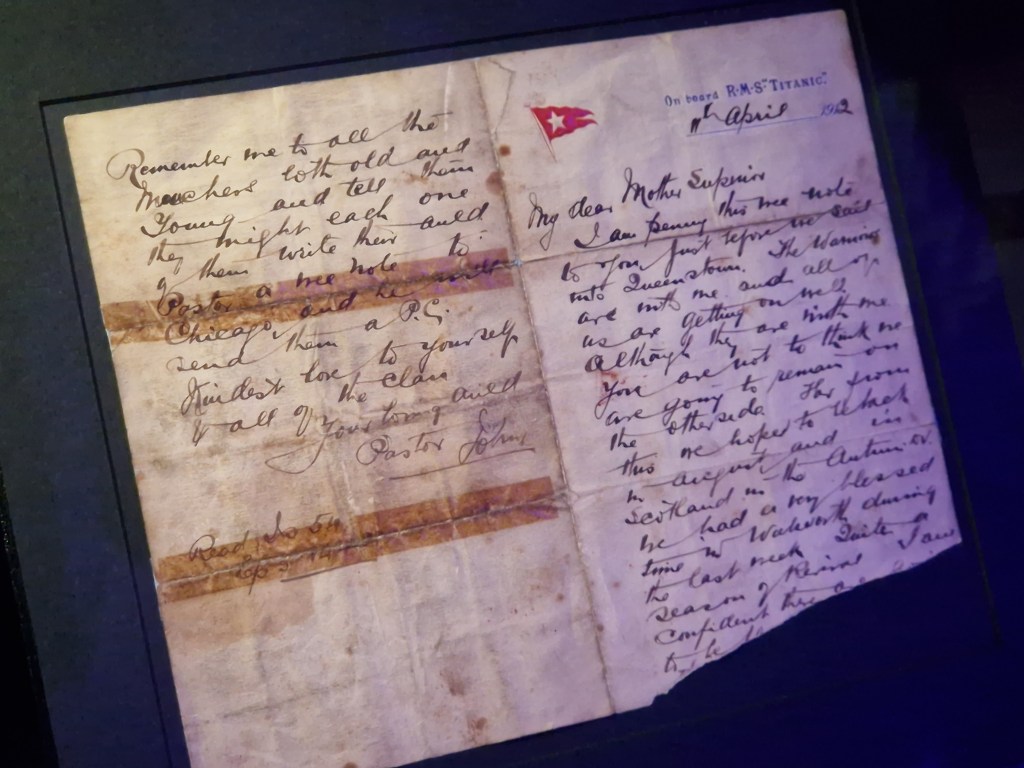 On board R·M·S·"TITANIC".
11th April 1912
My dear Mother Superior
I am penny this wee note
to you just before we sail
into Queenstown. The Warriors
are with me and all of
us are getting on well
Although they are with me
you are not to think we
are going to remain on
the other side Far from
this we hope to be back
in August and in
Scotland in the Autumn
we had a very blessed
time in Walworth during
the last week Quite a
season of Revival I am
confident there
to be
Remember me to all the
both old and
Young and tell them
they might each one
of them write their auld
Pastor a wee note to
Chicago, and he will
send them a P.C.
Kindest love to yourself
& all of the clan
Your loving auld
Pastor John
Read Is 54